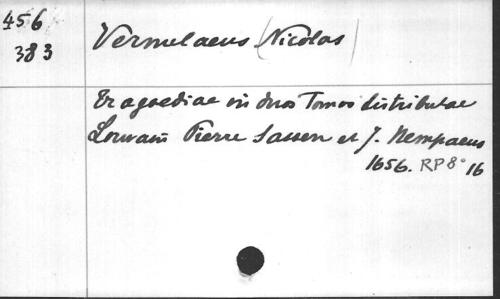 456
383
Vernulaeus (Nicolas)
Tragoediae in duos Tomos distributae
Louvain Pierre Sassen et J. Nempaeus
1656. RP 8° 16